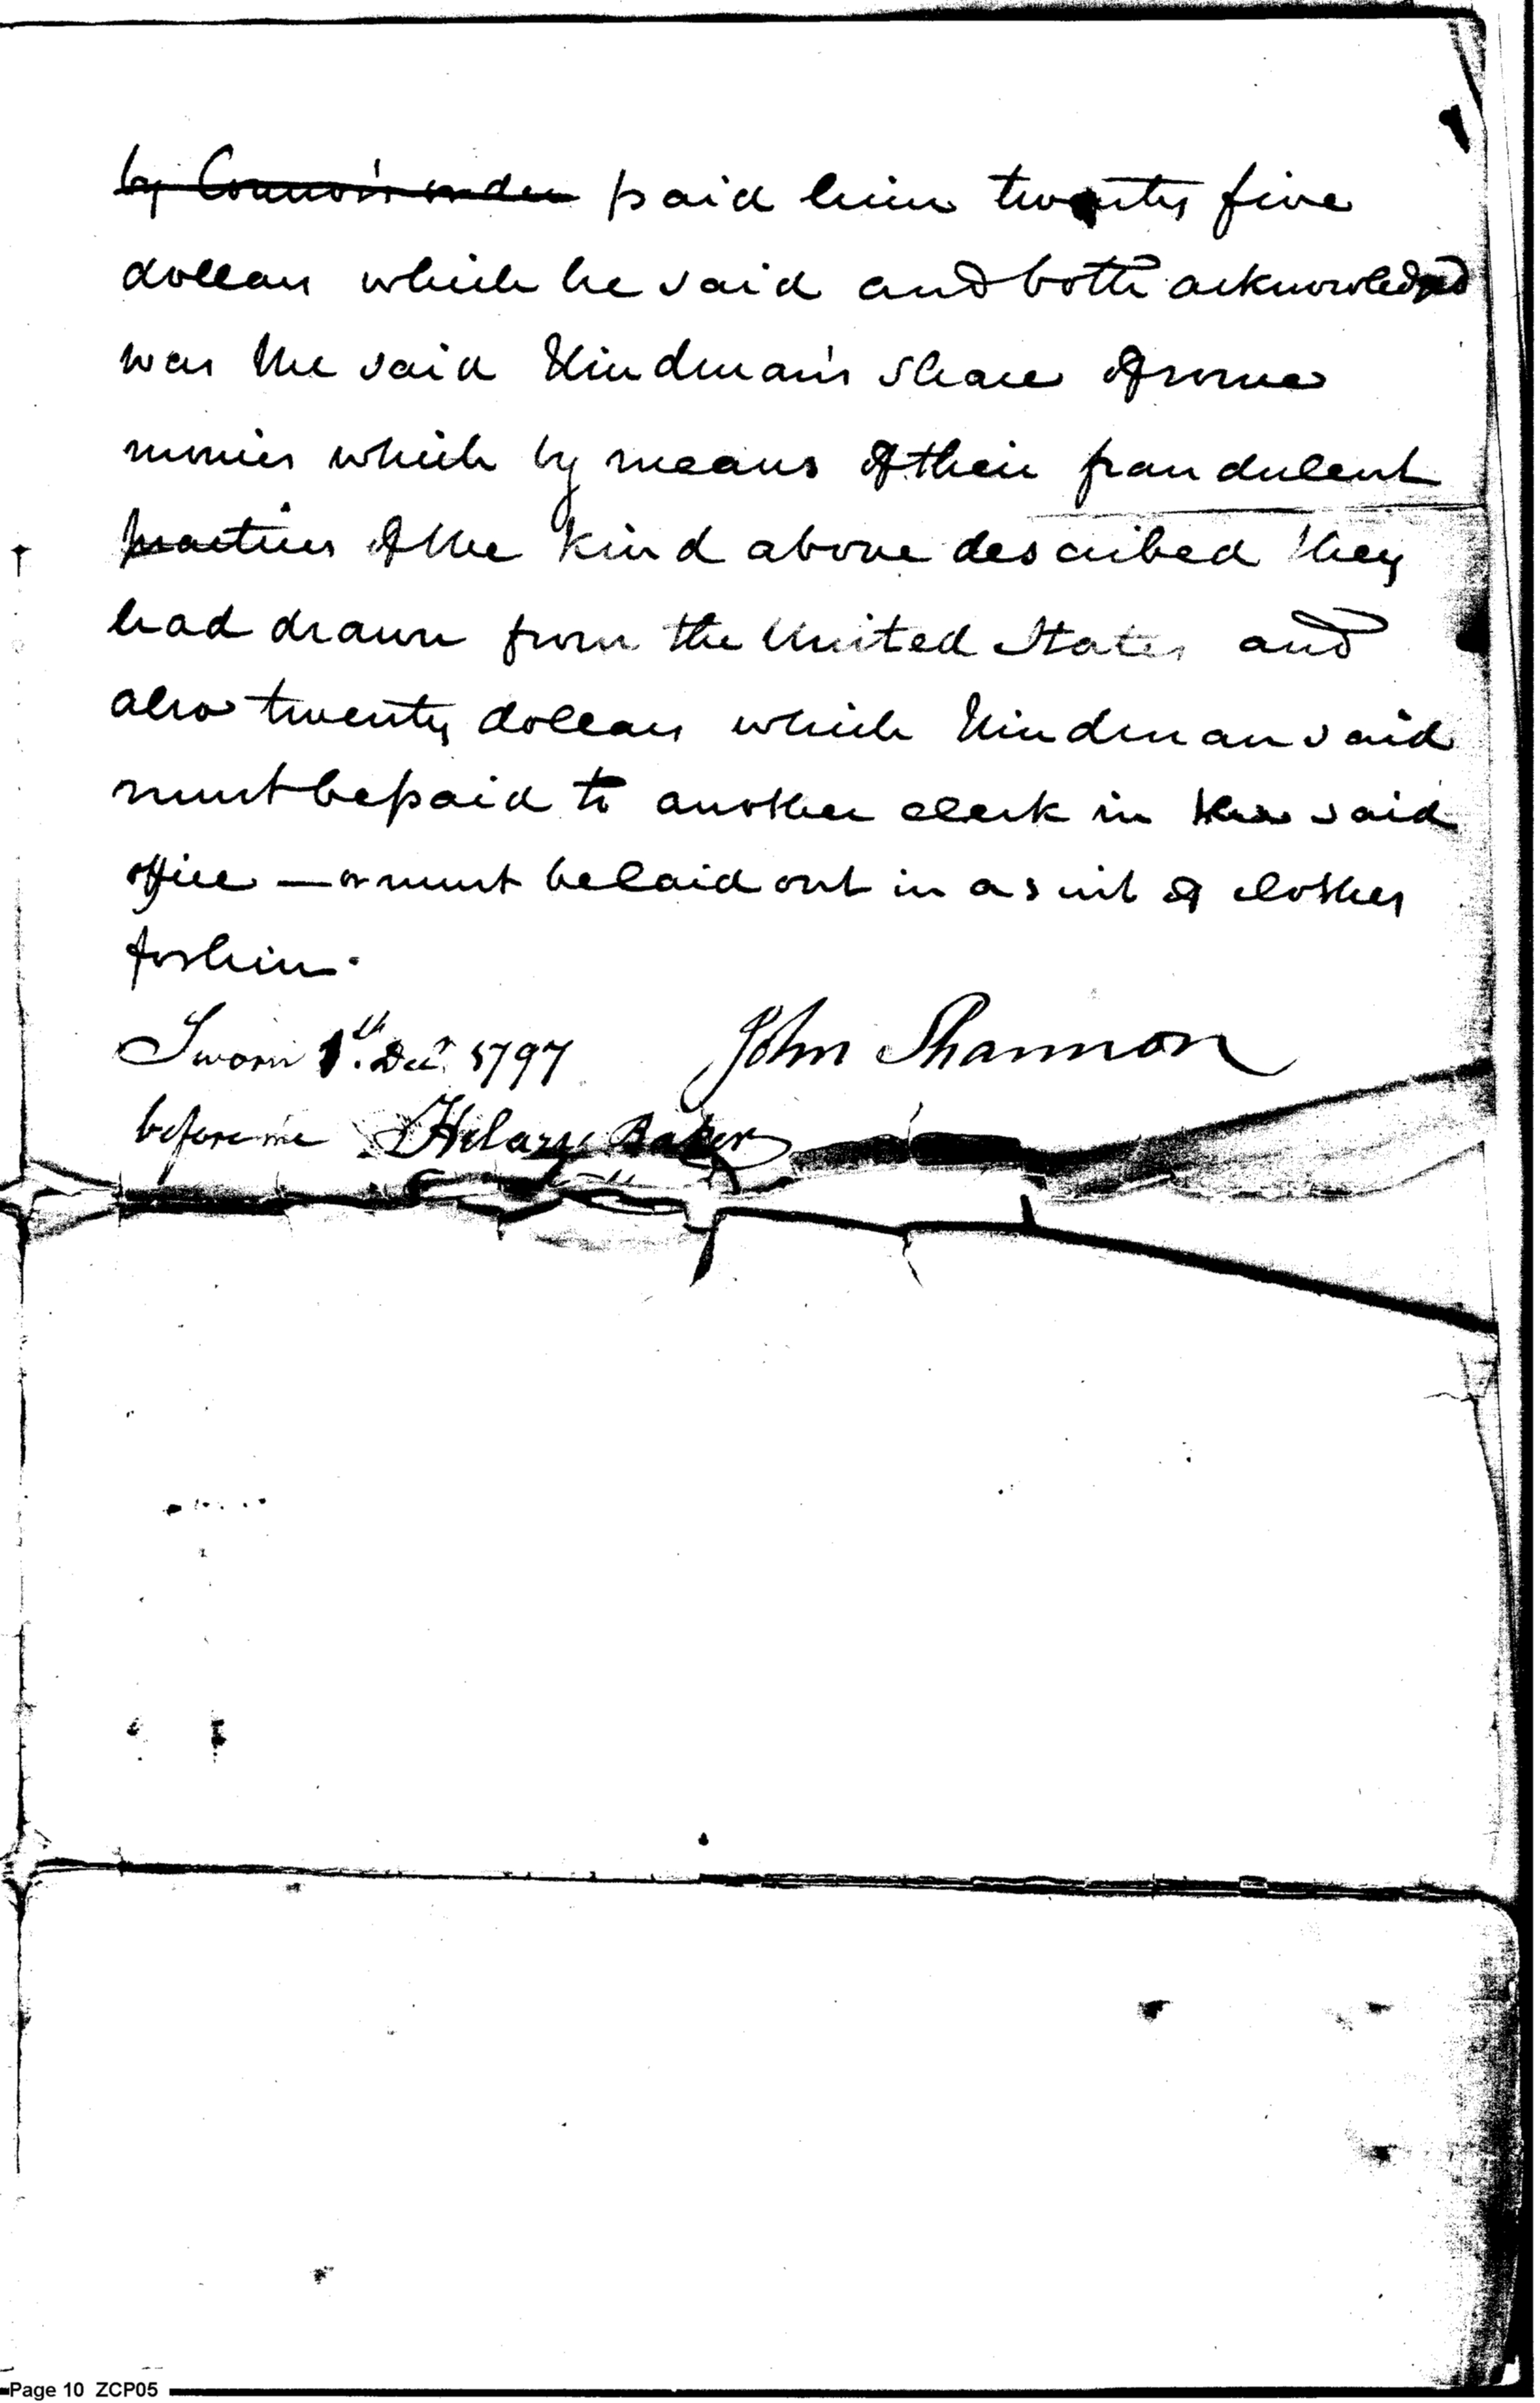 by Connor's order paid him twenty five
dollars which he said and both acknowledged
was the said Hindman's share of some
monies which by means of their fraudulent
practices of the kind above described they
had drawn from the United States and
also twenty dollars which Hindman said
must be paid to another clerk in the said
office — or must be laid out in a suit of clothes
for him.
Sworn 1th. Decr. 1797 John Shannon
before me Hilary Baker
Page 10 ZCP05